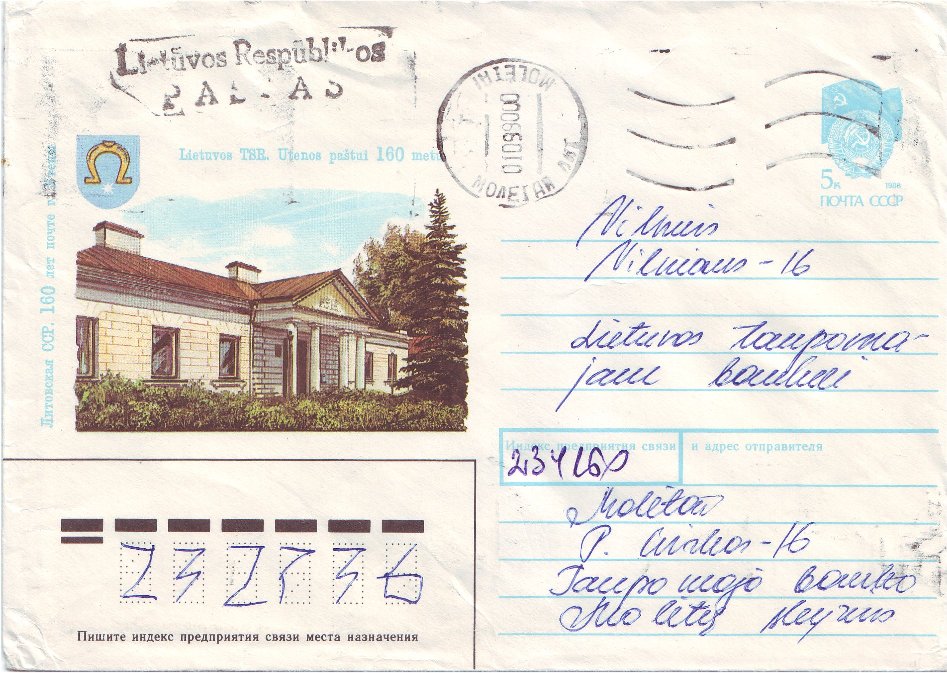 Lietuvos Respublikos
PAŠTAS
MOLĖTAI
МОЛЕТАЙ ЛИТ
Lietuvos TSR. Utenos paštui 160 metų
Литовская ССР. 160 лет почте г. Утены
5к 1988
ПОЧТА СССР
Vilnius
Vilniaus-16
Lietuvos taupoma-
jam bankui
Индекс предприятия связи и адрес отправителя
Molėtai
P. Cvirkos-16
Taupomojo banko
Molėtų skyrius
Пишите индекс предприятия связи места назначения